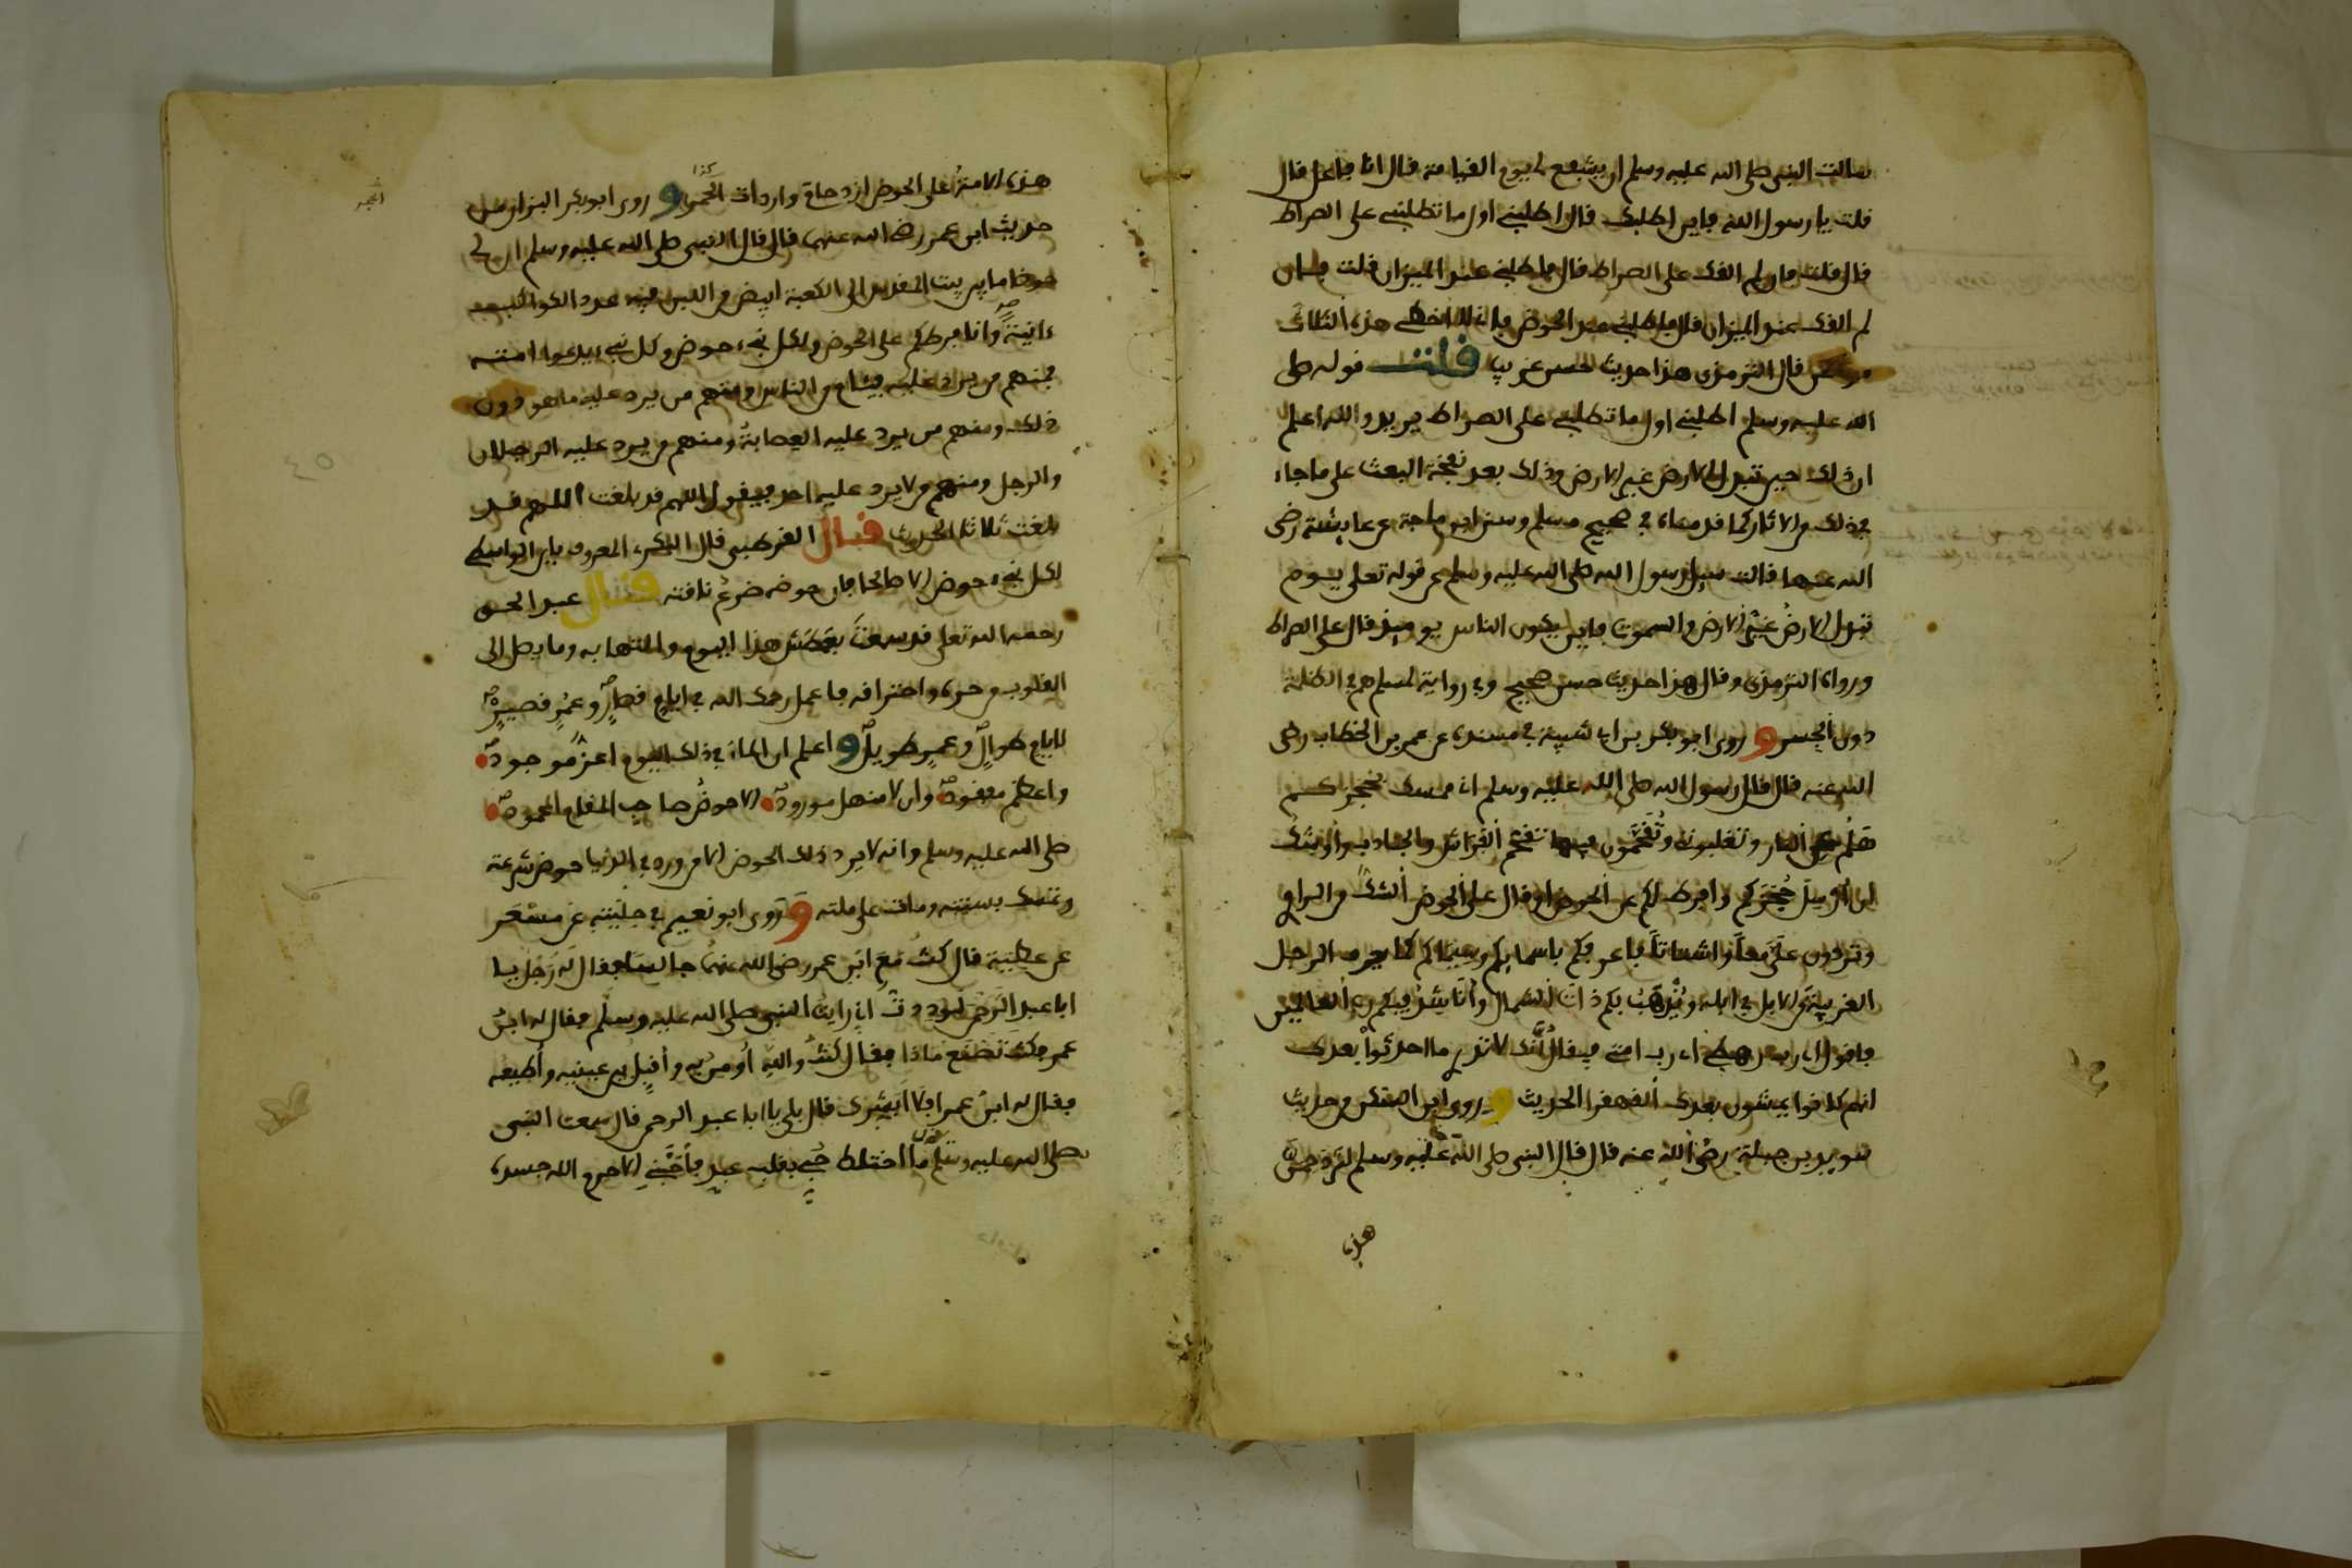 سالت النبي صلى الله عليه وسلم ان يشفع لي يوم القيامة فال انا فاعل فال
فلت يا رسول الله فاين اطلبك فال اطلبني اول ما تطلبني على الصراط
فال فلت فان لم الفك على الصراط فال فاطلبني عند الميزان فلت فان
لم الفك عند الميزان فال فاطلبني عند الحوض فاني لا اخطي هذه الثلاث
مواطن فال الترمذي هذا حديث حسن غريب فلت فوله صلى
الله عليه وسلم اطلبني اول ما تطلبني على الصراط يريد والله اعلم
ان ذلك حين تبدل الارض غير الارض وذلك بعد نفخة البعث على ما جاء
في ذلك من الاثار كما فدمناه في صحيح مسلم وسنن ابن ماجة عن عايشة رضي
الله عنها فالت سيل رسول الله صلى الله عليه وسلم عن فوله تعلى يوم
تبدل الارض غير الارض والسموت فاين يكون الناس يوميذ فال على الصراط
ورواه الترمذي وفال هذا حديث حسن صحيح وفي رواية لمسلم هم في الظلمة
دون الجسر و روى ابو بكر بن ابي شيبة في مسنده عن عمر بن الخطاب رضي
الله عنه فال فال رسول الله صلى الله عليه وسلم اني ممسك بحجزكم
هلم عن النار وتغلبونني وتفحمون فيها تفحم الفراش والجنادب واوشك
ان ارسل حجزكم وافرط لكم عن الحوض او فال على الحوض الشك من الراوي
وتردون علي معا واشتاتا فاعرفكم باسمايكم وسيماكم كما يعرف الرجل
الغريبة من الابل في ابله ويذهب بكم ذات الشمال وانا شد فيكم رب العالمين
فافول اي رب رهطي اي رب امتي فيفال انك لا تدري ما احدثوا بعدك
انهم كانوا يمشون بعدك الفهفرا الحديث و روى ابن من حديث
سويد بن جبلة رضي الله عنه فال فال النبي صلى الله عليه وسلم لتزدحمن
هذه
هذه الامة على الحوض ازدحام واردات الخمس و روى ابو بكر البزار من
كذا
حديث ابن عمر رضي الله عنهما فال فال النبي صلى الله عليه وسلم ان لي
حوضا ما بين بيت المفدس الى الكعبة ابيض من اللبن فيه عدد الكواكب
ءانية وانا فرطكم على الحوض ولكل نبيء حوض وكل نبيء يدعوا امته
فمنهم من يرد عليه فيام من الناس ومنهم من يرد عليه ما هو دون
ذلك ومنهم من يرد عليه العصابة ومنهم من يرد عليه الرجلان
والرجل ومنهم من لا يرد عليه احد فيفول اللهم فد بلغت اللهم فد
بلغت ثلاثا الحديث فال الفرطبي فال البكري المعروف بابن الواسطي
لكل نبيء حوض الا صالحا فان حوضه ضرع نافته فال عبد الحق
رحمه الله تعلى فد سمعت بعطش هذا اليوم والتهابه وما يصل الى
الفلوب من حره واحترافه فاعمل رحمك الله في ايام فصار وعمر فصير
لايام طوال وعمر طويل و اعلم ان الماء في ذلك اليوم اعز موجود
واعظم مفقود وان لا منهل مورود الا حوض صاحب المفام المحمود
صلى الله عليه وسلم وانه لا يرد ذلك الحوض الا من ورد في الدنيا حوض شرعته
وتمسك بسنته ومات على ملته و روى ابو نعيم في حليته عن مسعر
عن عطية فال كنت مع ابن عمر رضي الله عنهما جالسا ففال له رجل يا
ابا عبد الرحمن لوددت اني رايت النبي صلى الله عليه وسلم ففال له ابن
عمر فكنت تصنع ماذا ففال كنت والله اومن به وافبل بين عينيه واطيعه
ففال له ابن عمر افلا ابشرك فال بلى يا ابا عبد الرحمن فال سمعت النبي
صلى الله عليه وسلم ما اختلط حبي بفلب عبد فاحبني الا حرم الله جسده